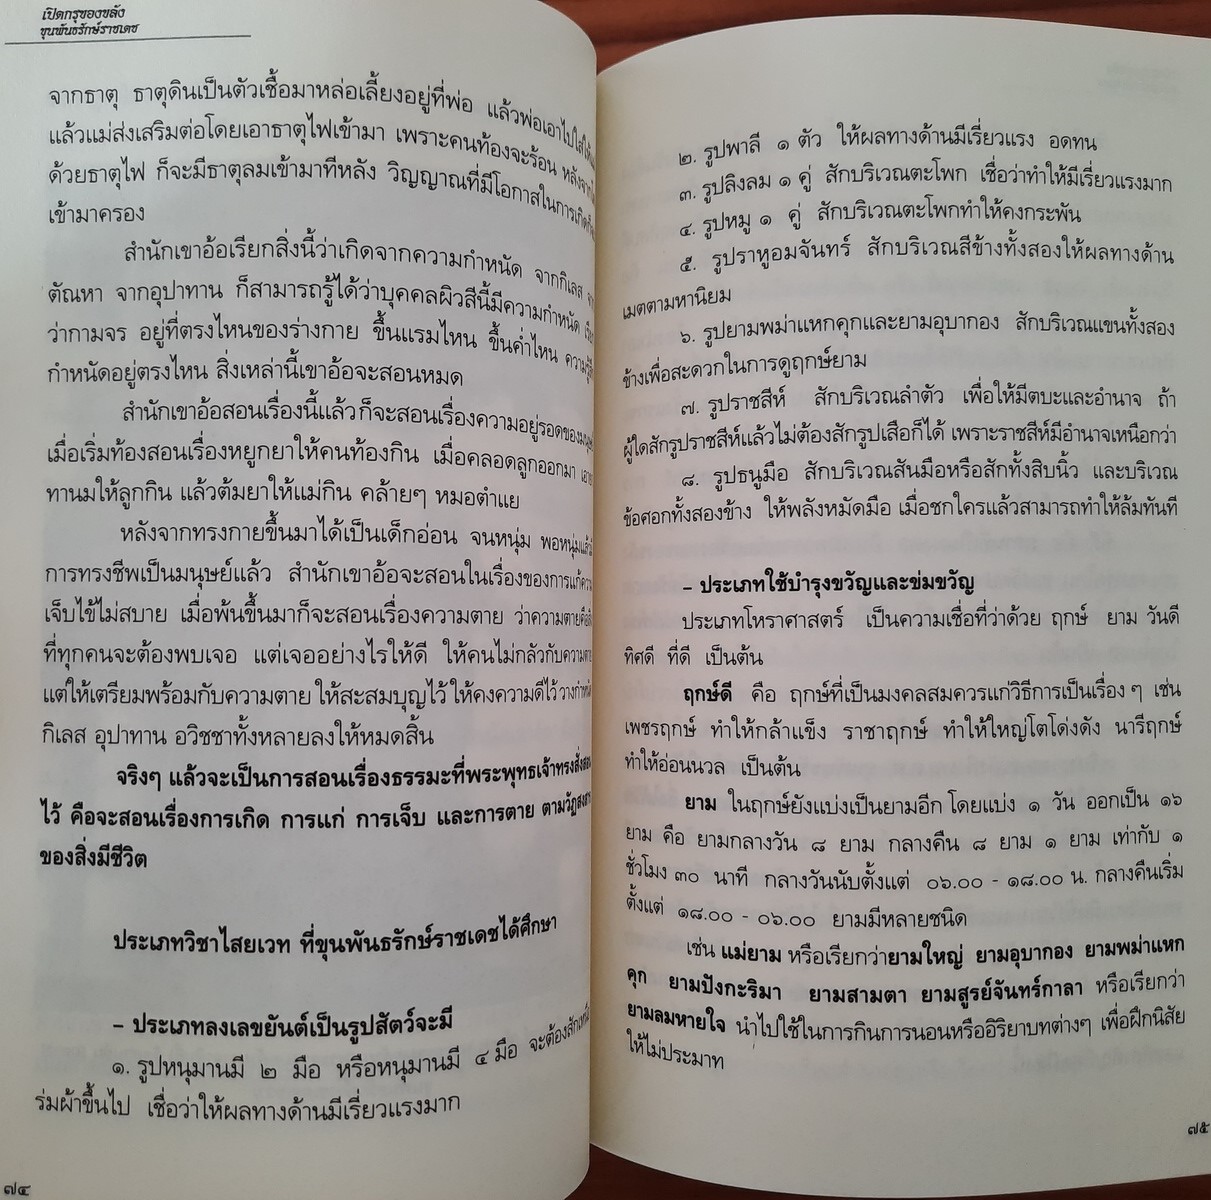 เปิดกรุของขลัง
ขุนพันธรักษ์ราชเดช
จากธาตุ ธาตุดินเป็นตัวเชื้อมาหล่อเลี้ยงอยู่ที่พ่อ แล้วพ่อเอาไปใส่ให้แม่
แล้วแม่ส่งเสริมต่อโดยเอาธาตุไฟเข้ามา เพราะคนท้องจะร้อน
ด้วยธาตุไฟ ก็จะมีธาตุลมเข้ามาทีหลัง วิญญาณที่มีโอกาสในการเกิดก็
เข้ามาครอง
สำนักเขาอ้อเรียกสิ่งนี้ว่าเกิดจากความกำหนัด จากกิเลส
ตัณหา จากอุปาทาน ก็สามารถรู้ได้ว่าบุคคลผิวสีนี้มีความกำหนัด
ว่ากามจร อยู่ที่ตรงไหนของร่างกาย ขึ้นแรมไหน ขึ้นค่ำไหน
กำหนัดอยู่ตรงไหน สิ่งเหล่านี้เขาอ้อจะสอนหมด
สำนักเขาอ้อสอนเรื่องนี้แล้วก็จะสอนเรื่องความอยู่รอดของมนุษย์
เมื่อเริ่มท้องสอนเรื่องหยูกยาให้คนท้องกิน เมื่อคลอดลูกออกมา
ทานมให้ลูกกิน แล้วต้มยาให้แม่กิน คล้ายๆ หมอตำแย
หลังจากทรงกายขึ้นมาได้เป็นเด็กอ่อน จนหนุ่ม พอหนุ่มแล้ว
การทรงชีพเป็นมนุษย์แล้ว สำนักเขาอ้อจะสอนในเรื่องของการแก้ความ
เจ็บไข้ไม่สบาย เมื่อพ้นขึ้นมาก็จะสอนเรื่องความตาย ว่าความตายคือสิ่ง
ที่ทุกคนจะต้องพบเจอ แต่เจออย่างไรให้ดี ให้คนไม่กลัวกับความตาย
แต่ให้เตรียมพร้อมกับความตาย ให้สะสมบุญไว้ ให้คงความดีไว้ วางกำหนัด
กิเลส อุปาทาน อวิชชาทั้งหลายลงให้หมดสิ้น
จริงๆ แล้วจะเป็นการสอนเรื่องธรรมะที่พระพุทธเจ้าทรงสั่งสอน
ไว้ คือจะสอนเรื่องการเกิด การแก่ การเจ็บ และการตาย ตามวัฏสงสาร
ของสิ่งมีชีวิต
ประเภทวิชาไสยเวท ที่ขุนพันธรักษ์ราชเดชได้ศึกษา
– ประเภทลงเลขยันต์เป็นรูปสัตว์จะมี
๑. รูปหนุมานมี ๒ มือ หรือหนุมานมี ๔ มือ จะต้องสักเหนือ
ร่มผ้าขึ้นไป เชื่อว่าให้ผลทางด้านมีเรี่ยวแรงมาก
๗๔
๒. รูปพาลี ๑ ตัว ให้ผลทางด้านมีเรี่ยวแรง อดทน
๓. รูปลิงลม ๑ คู่ สักบริเวณตะโพก เชื่อว่าทำให้มีเรี่ยวแรงมาก
๔. รูปหมู ๑ คู่ สักบริเวณตะโพกทำให้คงกระพัน
๕. รูปราหูอมจันทร์ สักบริเวณสีข้างทั้งสองให้ผลทางด้าน
เมตตามหานิยม
๖. รูปยามพม่าแหกคุกและยามอุบากอง สักบริเวณแขนทั้งสอง
ข้างเพื่อสะดวกในการดูฤกษ์ยาม
๗. รูปราชสีห์ สักบริเวณลำตัว เพื่อให้มีตบะและอำนาจ ถ้า
ผู้ใดสักรูปราชสีห์แล้วไม่ต้องสักรูปเสือก็ได้ เพราะราชสีห์มีอำนาจเหนือกว่า
๘. รูปธนูมือ สักบริเวณสันมือหรือสักทั้งสิบนิ้ว และบริเวณ
ข้อศอกทั้งสองข้าง ให้พลังหมัดมือ เมื่อชกใครแล้วสามารถทำให้ล้มทันที
– ประเภทใช้บำรุงขวัญและข่มขวัญ
ประเภทโหราศาสตร์ เป็นความเชื่อที่ว่าด้วย ฤกษ์ ยาม วันดี
ทิศดี ที่ดี เป็นต้น
ฤกษ์ดี คือ ฤกษ์ที่เป็นมงคลสมควรแก่วิธีการเป็นเรื่อง ๆ เช่น
เพชรฤกษ์ ทำให้กล้าแข็ง ราชาฤกษ์ ทำให้ใหญ่โตโด่งดัง นารีฤกษ์
ทำให้อ่อนนวล เป็นต้น
ยาม ในฤกษ์ยังแบ่งเป็นยามอีก โดยแบ่ง ๑ วัน ออกเป็น ๑๖
ยาม คือ ยามกลางวัน ๘ ยาม กลางคืน ๘ ยาม ๑ ยาม เท่ากับ ๑
ชั่วโมง ๓๐ นาที กลางวันนับตั้งแต่ ๐๖.๐๐ - ๑๘.๐๐ น. กลางคืนเริ่ม
ตั้งแต่ ๑๘.๐๐ - ๐๖.๐๐ ยามมีหลายชนิด
เช่น แม่ยาม หรือเรียกว่ายามใหญ่ ยามอุบากอง ยามพม่าแหก
คุก ยามปังกะริมา ยามสามตา ยามสูรย์จันทร์กาลา หรือเรียกว่า
ยามลมหายใจ นำไปใช้ในการกินการนอนหรืออิริยาบทต่างๆ เพื่อฝึกนิสัย
ให้ไม่ประมาท
๗๕